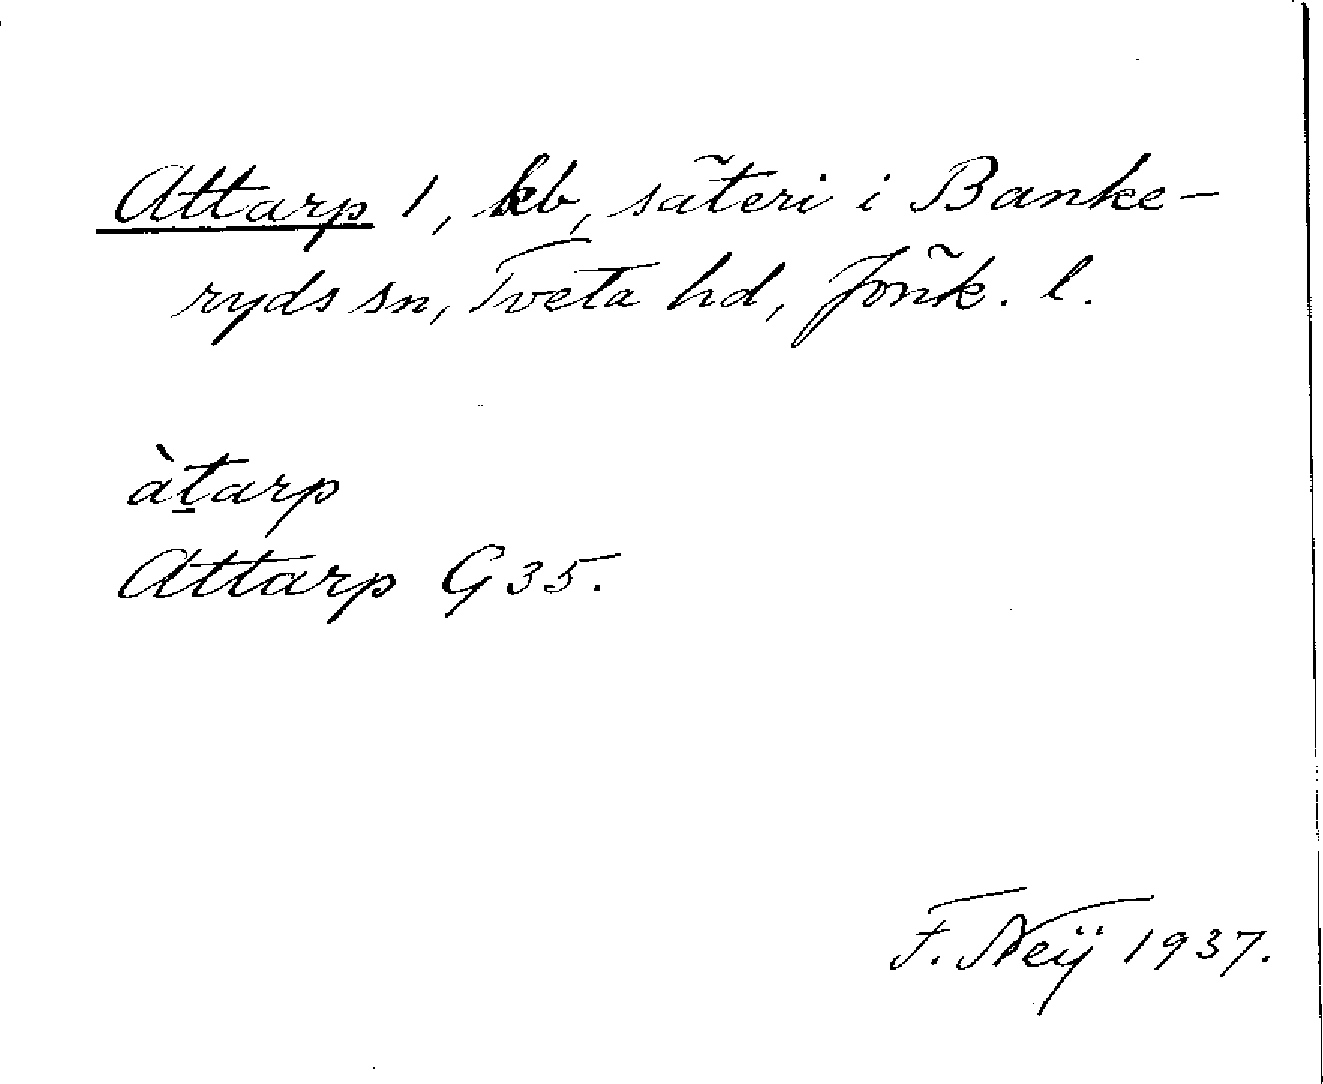 Attarp 1, kb, säteri i Banke-
ryds sn, Tveta hd, Jönk. l.
àt̲arp
Attarp G35.
F. Neij 1937.